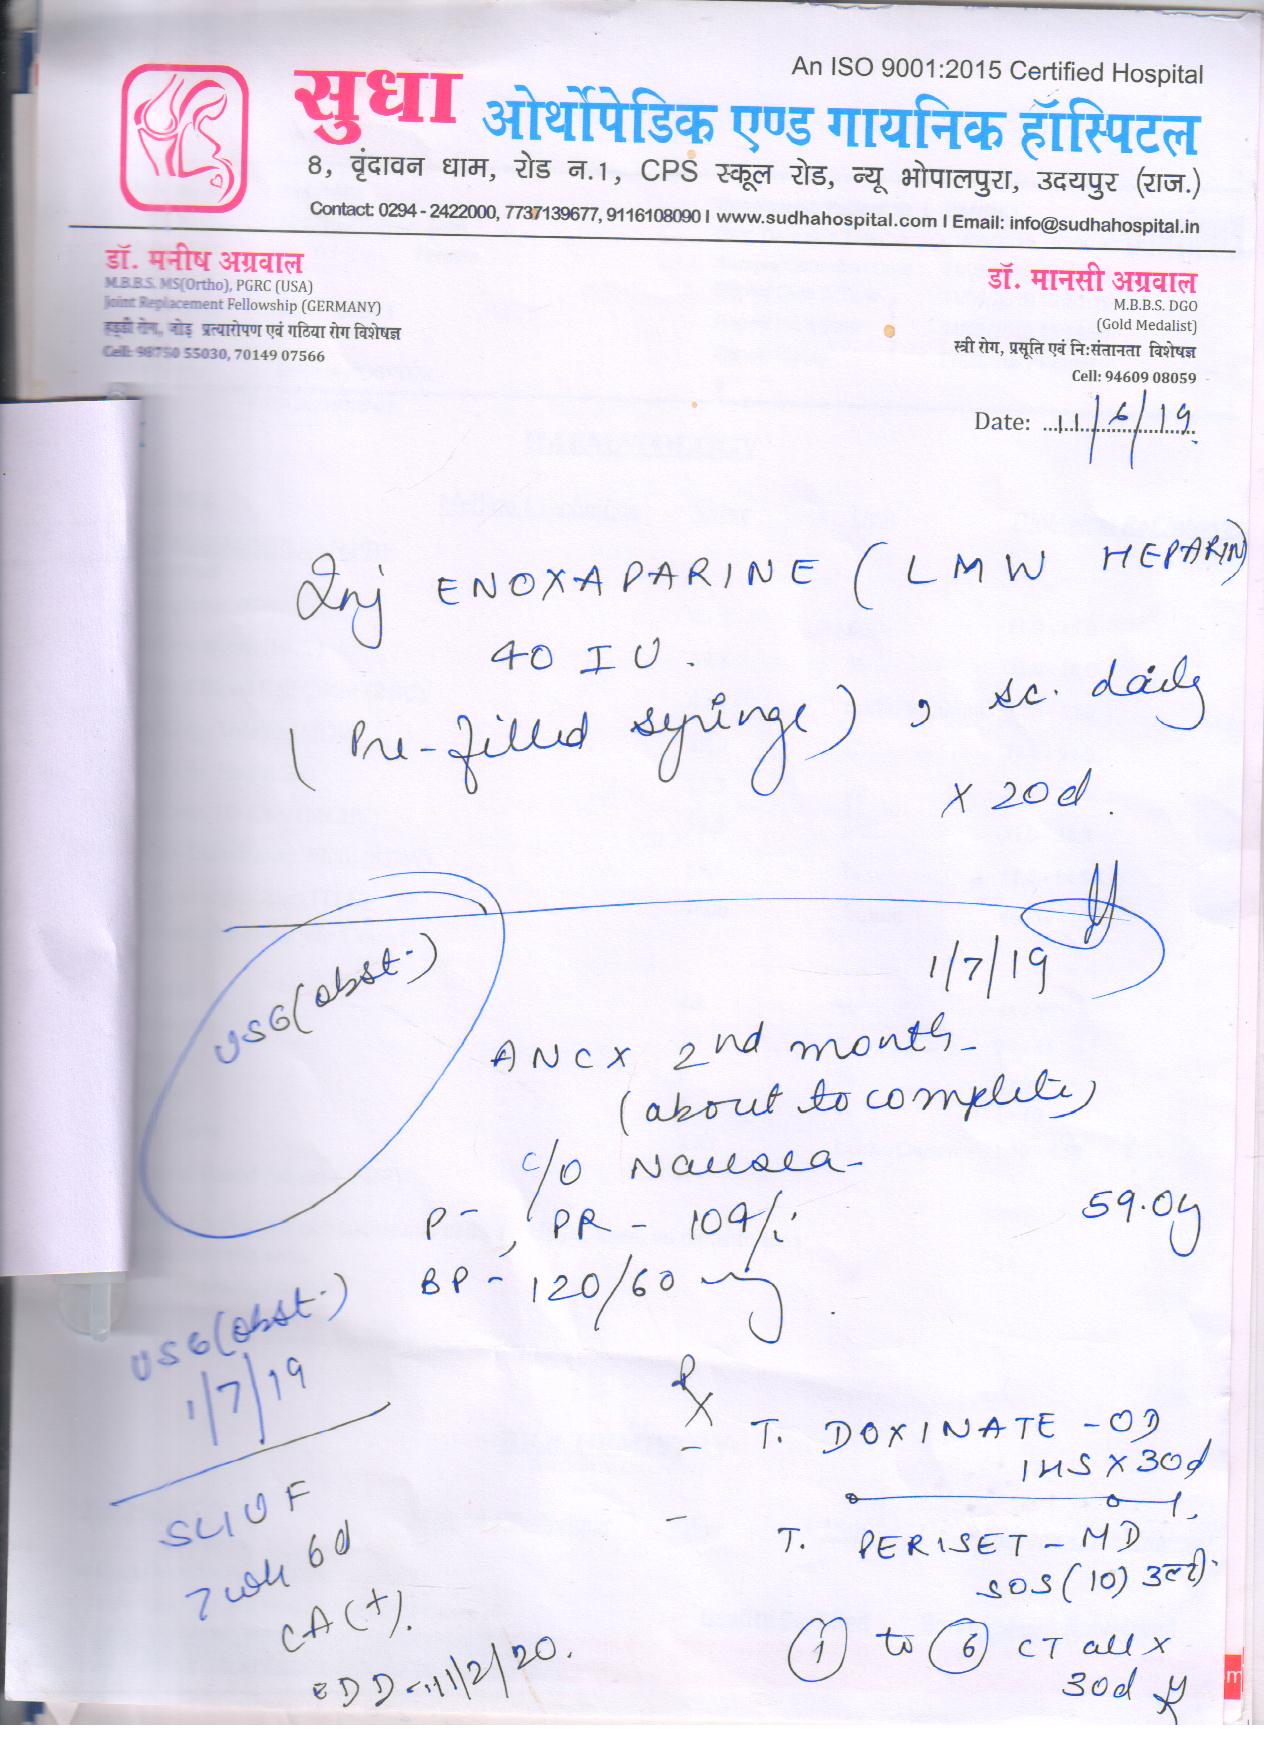 An ISO 9001:2015 Certified Hospital
सुधा ओर्थोपेडिक एण्ड गायनिक हॉस्पिटल
8, वृंदावन धाम, रोड न.1, CPS स्कूल रोड, न्यू भोपालपुरा, उदयपुर (राज.)
Contact: 0294 - 2422000, 7737139677, 9116108090 I www.sudhahospital.com I Email: info@sudhahospital.in
डॉ. मनीष अग्रवाल
M.B.B.S. MS(Ortho), PGRC (USA)
Joint Replacement Fellowship (GERMANY)
हड्डी रोग, जोड़ प्रत्यारोपण एवं गठिया रोग विशेषज्ञ
Cell: 98750 55030, 70149 07566
डॉ. मानसी अग्रवाल
M.B.B.S. DGO
(Gold Medalist)
स्त्री रोग, प्रसूति एवं निःसंतानता विशेषज्ञ
Cell: 94609 08059
Date: 11/6/19
Inj ENOXAPARINE (LMW HEPARIN)
40 IU.
(Pre-filled syringe), sc. daily
x 20d.
USG (obst.)
1/7/19
ANC x 2nd month
(about to complete)
c/o Nausea
P-, PR - 104/
59.0
BP - 120/60
USG (obst.)
1/7/19
SLIUF
7 wk 6d
CA (+).
EDD - 11/2/20.
Rx
- T. DOXINATE - OD
1HS x 30d
- T. PERISET - MD
SOS (10) उल्टी
1 to 6 CT all x
30d
m